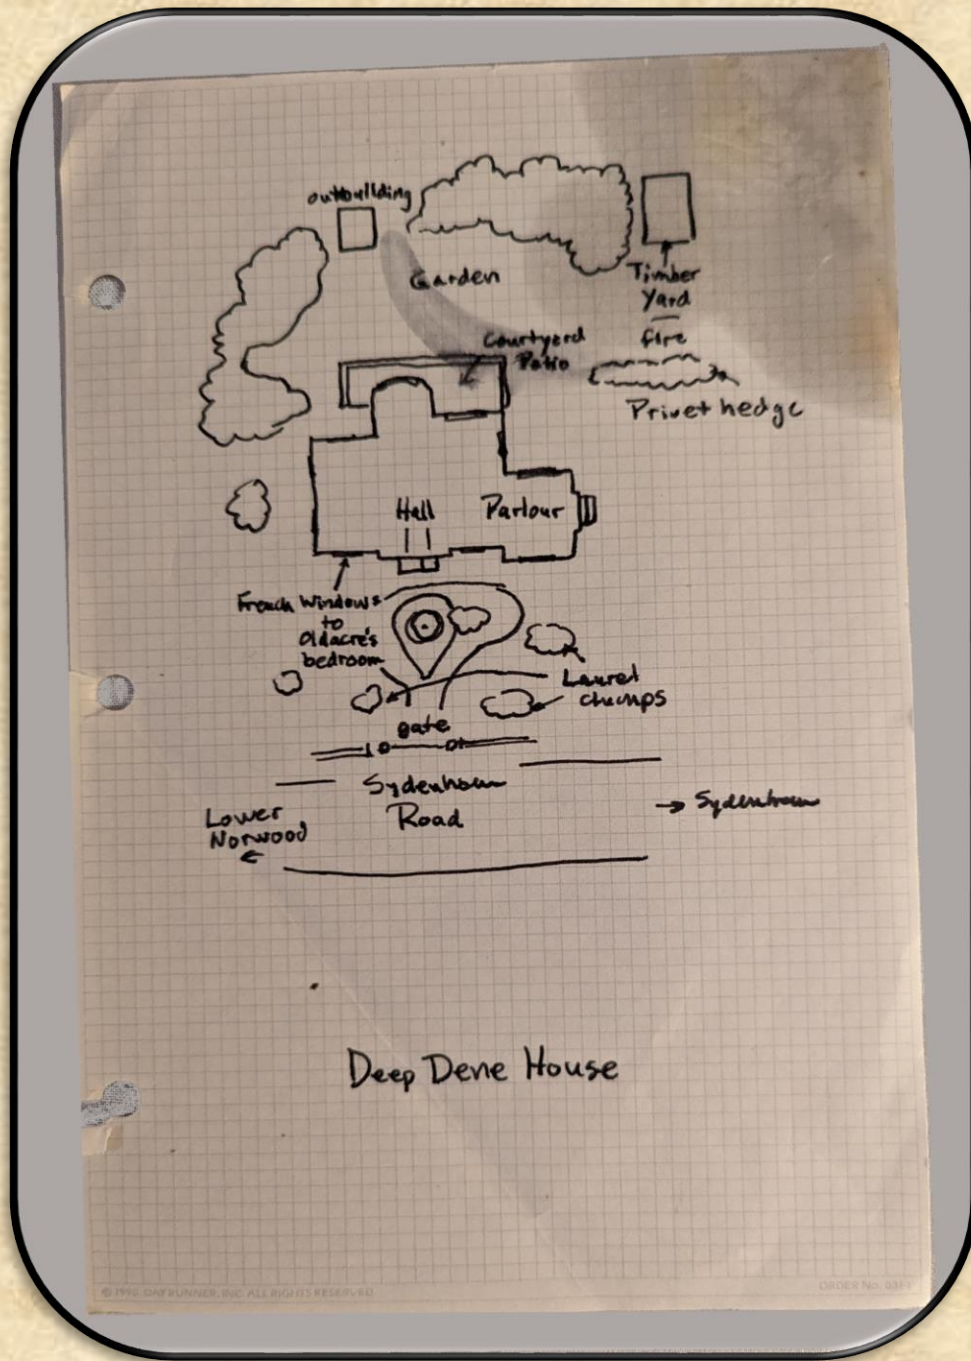 outbuilding
Garden
Timber
Yard
fire
Courtyard
Patio
Privet hedge
Hall
Parlour
French Windows
to
Oldacre's
bedroom
Laurel
clumps
gate
Sydenham
Road
Lower
Norwood
Sydenham
Deep Dene House
© 1990 DAY RUNNER, INC. ALL RIGHTS RESERVED
ORDER No.